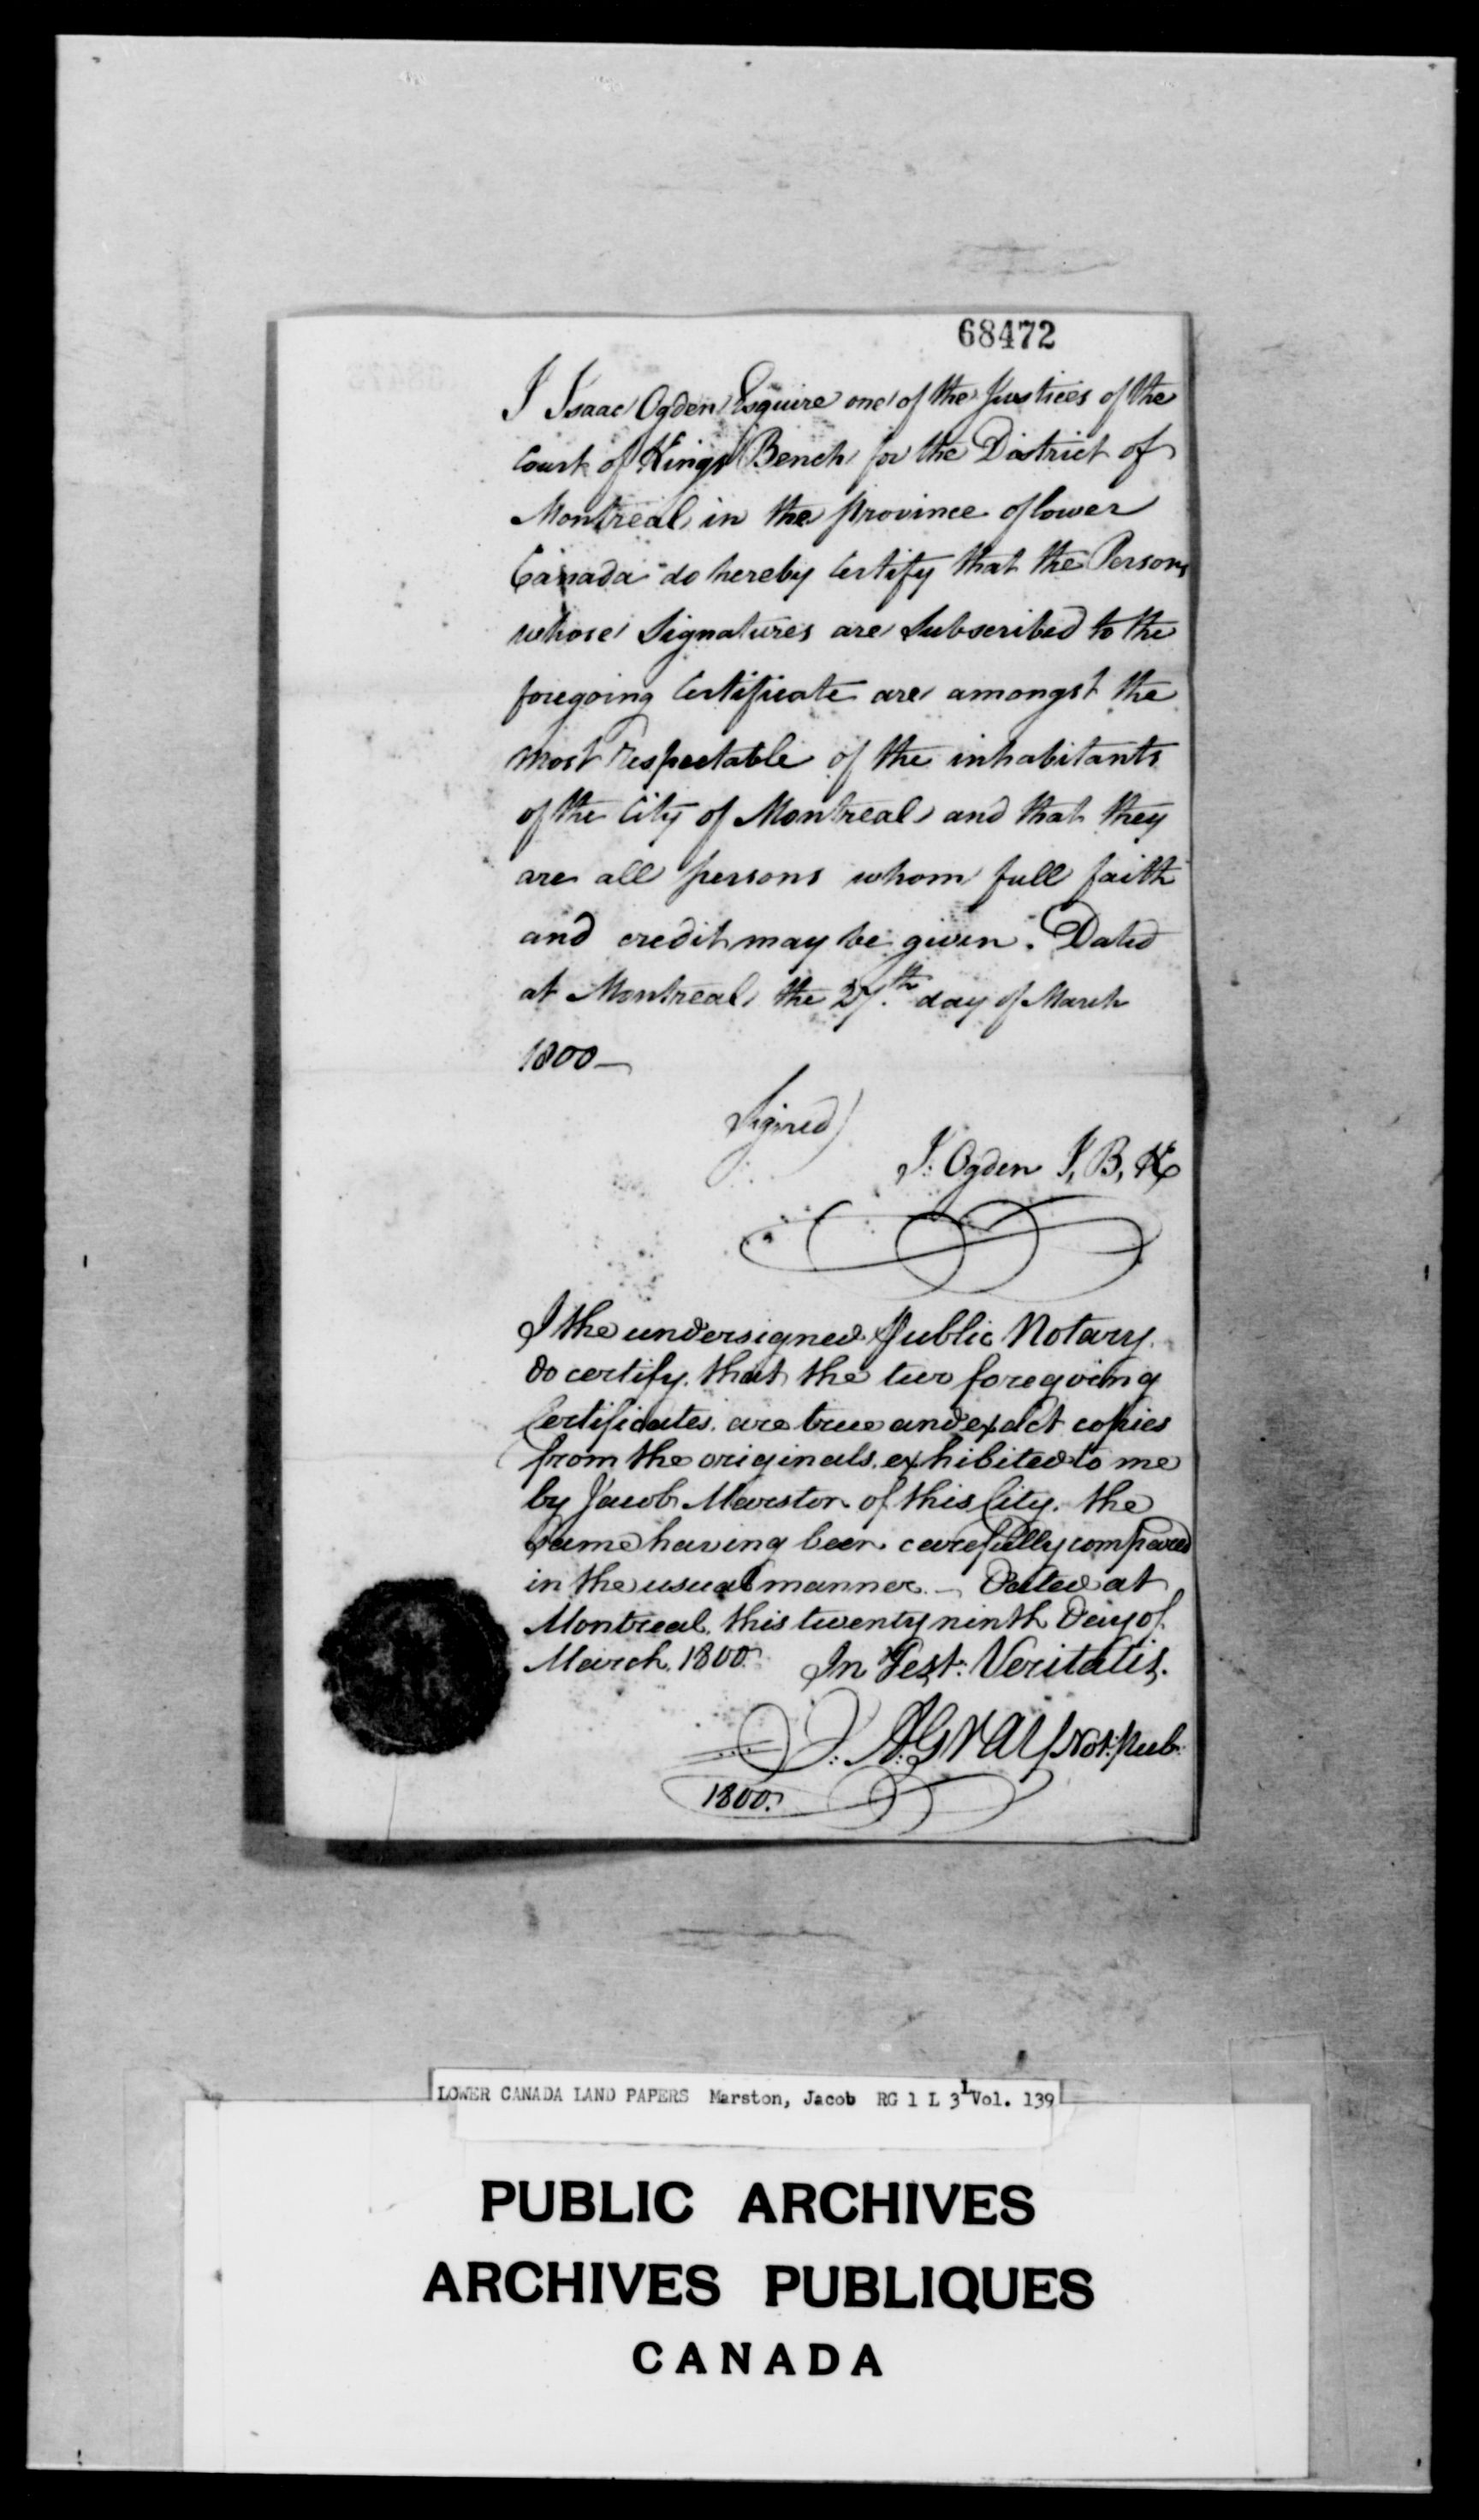 68472
I Isaac Ogden Esquire one of the Justices of the
Court of Kings Bench for the District of
Montreal in the province of lower
Canada do hereby Certify that the Persons
whose Signatures are Subscribed to the
foregoing Certificate are amongst the
most respectable of the inhabitants
of the City of Montreal and that they
are all persons whom full faith
and credit may be given. Dated
at Montreal the 27.th day of March
1800
Signed)
I: Ogden J, B, K
I the undersigned Public Notary.
do certify that the two foregoing
Certificates are true and exact copies
from the originals exhibited to me
by Jacob Marston of this City. the
Same having been carefully compared
in the usual manner. — Dated at
Montreal this twenty ninth Day of
March. 1800. In Test: Veritatis.
J: A: Gray Not: pub:
1800.
LOWER CANADA LAND PAPERS Marston, Jacob RG 1 L 3 L Vol. 139
PUBLIC ARCHIVES
ARCHIVES PUBLIQUES
CANADA